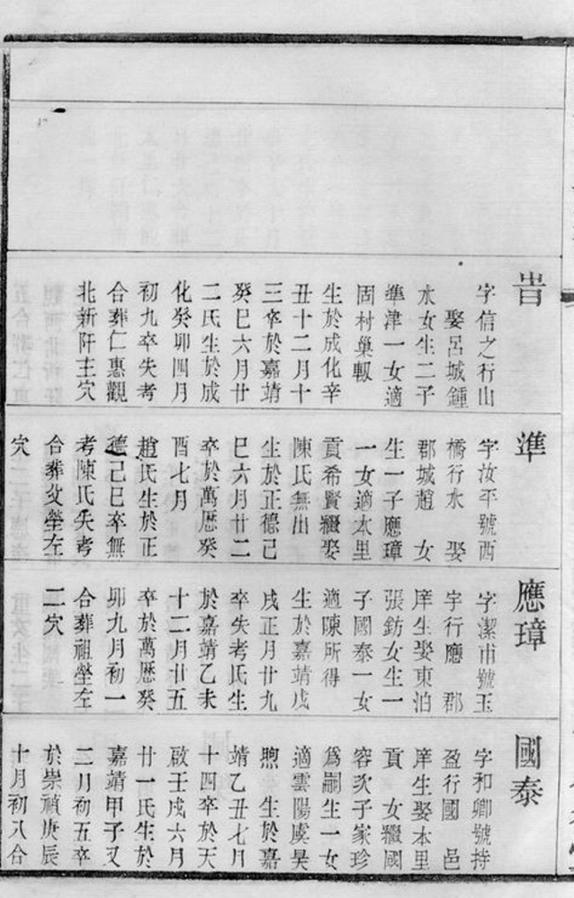 旹
字信之行山
娶呂城鍾
水女生二子
準津一女適
固村巢軏
生於成化辛
丑十二月十
三卒於嘉靖
癸巳六月廿
二氏生於成
化癸卯四月
初九卒失考
合葬仁惠觀
北新阡主穴
準
字汝平號西
橋行水 娶
郡城趙 女
生一子應璋
一女適本里
貢希賢繼娶
陳氏無出
生於正德己
巳六月廿二
卒於萬曆癸
酉七月
趙氏生於正
德己巳卒無
考陳氏失考
合葬父塋左
穴
應璋
字潔甫號玉
宇行應 郡
庠生娶東泊
張鈁女生一
子國泰一女
適陳所得
生於嘉靖戊
戌正月廿九
卒失考氏生
於嘉靖乙未
十二月廿五
卒於萬曆癸
卯九月初一
合葬祖塋左
二穴
國泰
字和卿號持
盈行國 邑
庠生娶本里
貢 女繼國
容次子家珍
爲嗣生一女
適雲陽虞昊
煦 生於嘉
靖乙丑七月
十四卒於天
啟壬戌六月
廿一氏生於
嘉靖甲子又
二月初五卒
於崇禎庚辰
十月初八合